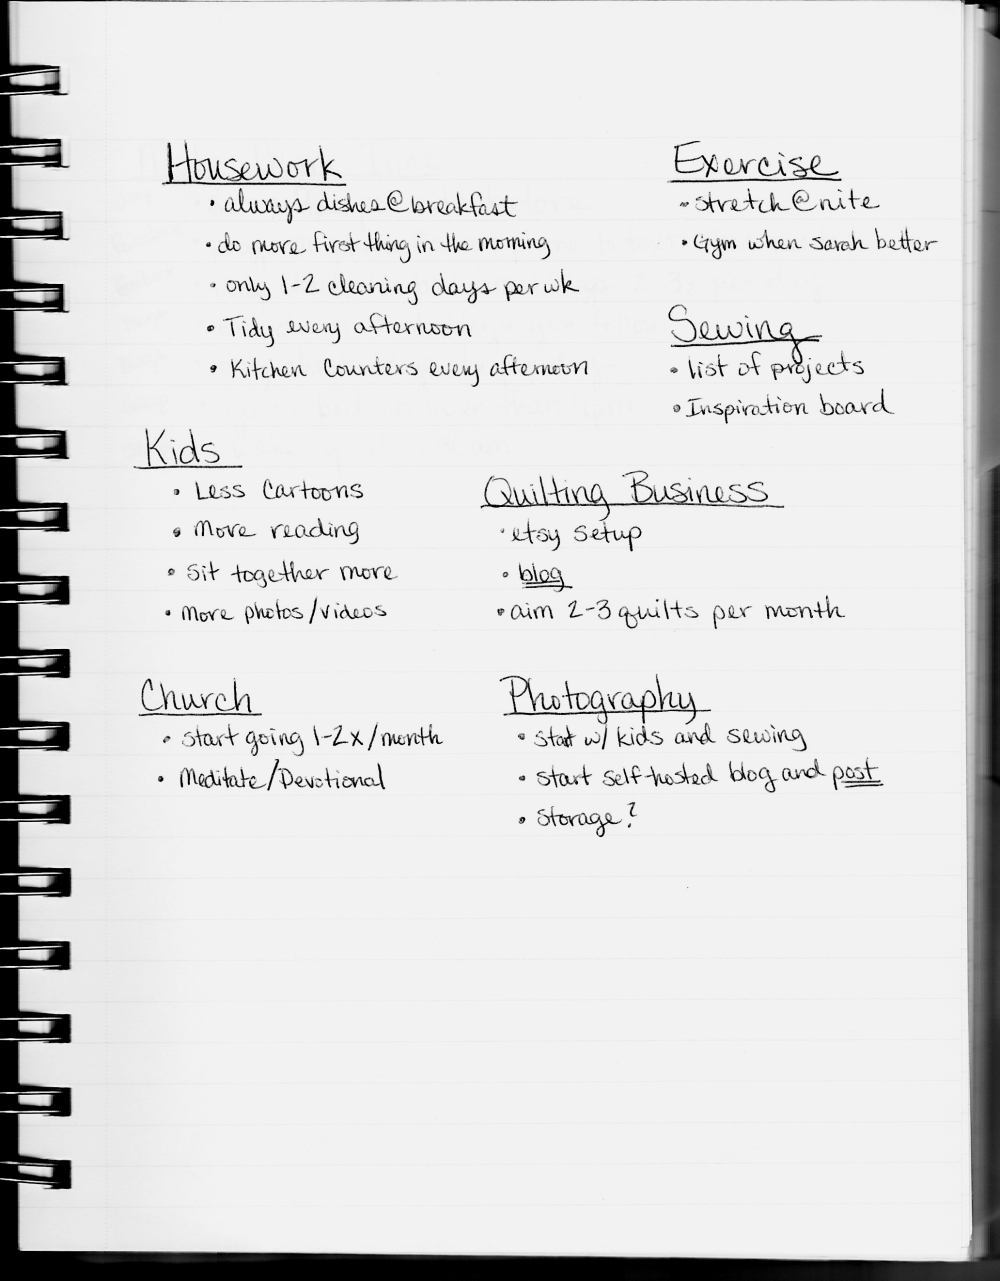 Housework
• always dishes @ breakfast
• do more first thing in the morning
• only 1-2 cleaning days per wk
• Tidy every afternoon
• Kitchen Counters every afternoon
Exercise
• stretch @ nite
• Gym when sarah better
Sewing
• list of projects
• Inspiration board
Kids
• Less Cartoons
• More reading
• Sit together more
• More photos/videos
Quilting Business
• etsy setup
• blog
• aim 2-3 quilts per month
Church
• start going 1-2x/month
• Meditate/Devotional
Photography
• start w/ kids and sewing
• start self-hosted blog and post
• storage?